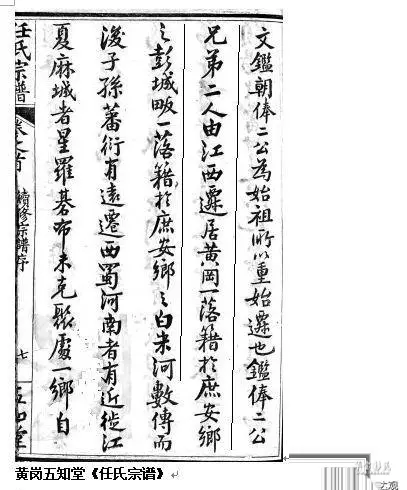 文鑑朝俸二公為始祖所以重始遷也鑑俸二公
兄弟二人由江西遷居黃岡一落籍於庶安鄉
之彭城畈一落籍於庶安鄉之白米河數傳而
後子孫蕃衍有遠遷西蜀河南者有近徙江
夏麻城者星羅碁布未克聚處一鄉自
任氏宗譜
卷之首
續修宗譜序
七
五知堂
黄岗五知堂《任氏宗谱》